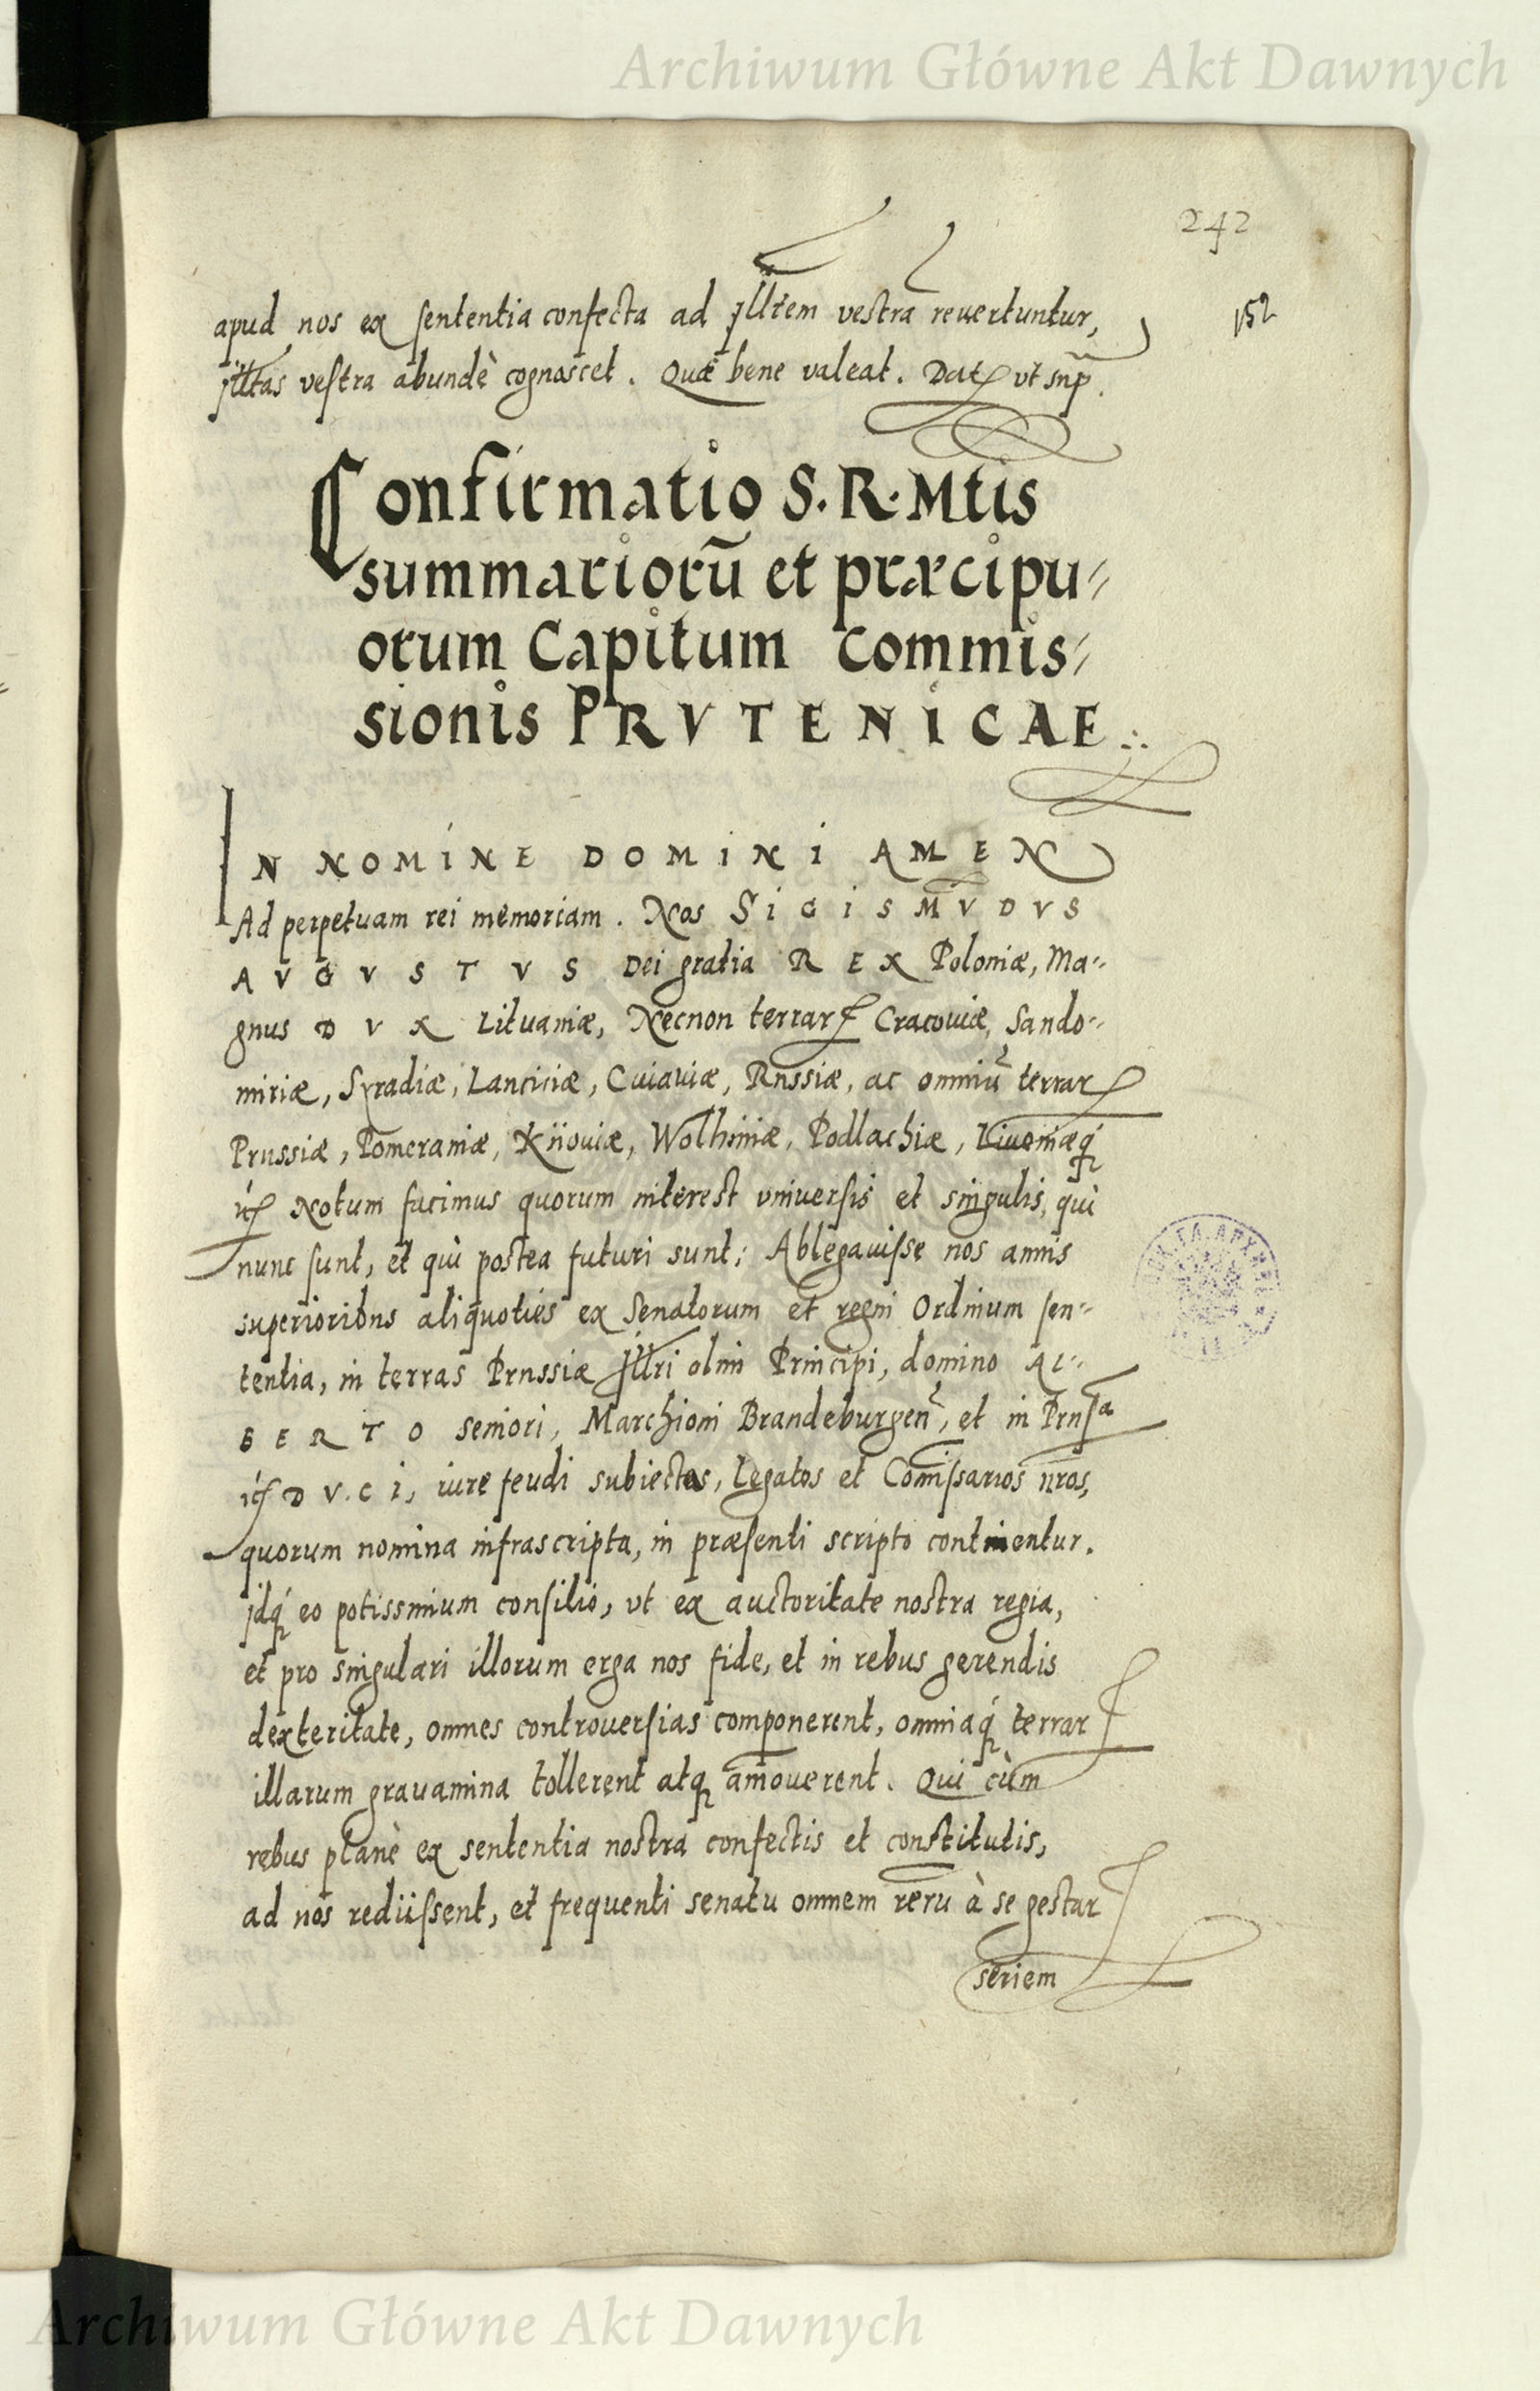 Archiwum Główne Akt Dawnych
242
152
apud nos ex sententia confecta ad Jlltem vestrā reuertuntur,
jlltas vestra abundè cognoscet. Quæ bene valeat. Dat ut sup.
Confirmatio S. R. Mtis
summariorū et præcipu-
orum Capitum Commis-
sionis PRVTENICAE
IN NOMINE DOMINI AMEN
Ad perpetuam rei memoriam. Nos SIGISMVDVS
AVGVSTVS Dei gratia REX Poloniæ, Ma-
gnus DVX Lituaniæ, Necnon terrar Cracouiæ, Sando-
miriæ, Syradiæ, Lanciciæ, Cuiauiæ, Russiæ, ac omniū terrar
Prussiæ, Pomeraniæ, Kiiouiæ, Wolhiniæ, Podlachiæ, Liuoniæq́
Notum facimus quorum interest vniuersis et singulis, qui
nunc sunt, et qui postea futuri sunt; Ablegauisse nos annis
superioribus aliquoties ex Senatorum et regni Ordinum sen-
tentia, in terras Prussiæ Jllri olim Principi, domino AL-
BERTO seniori, Marchioni Brandeburgen, et in Prusa
DVCI, iure feudi subiectas, Legatos et Comissarios nros,
quorum nomina infrascripta, in præsenti scripto continentur.
jdq́ eo potissimum consilio, vt ex auctoritate nostra regia,
et pro singulari illorum erga nos fide, et in rebus gerendis
dexteritate, omnes controuersias componerent, omniaq́ terrar
illarum grauamina tollerent atq amouerent. Qui cùm
rebus planè ex sententia nostra confectis et constitutis,
ad nos rediissent, et frequenti senatu omnem reru à se gestar
seriem
Archiwum Główne Akt Dawnych